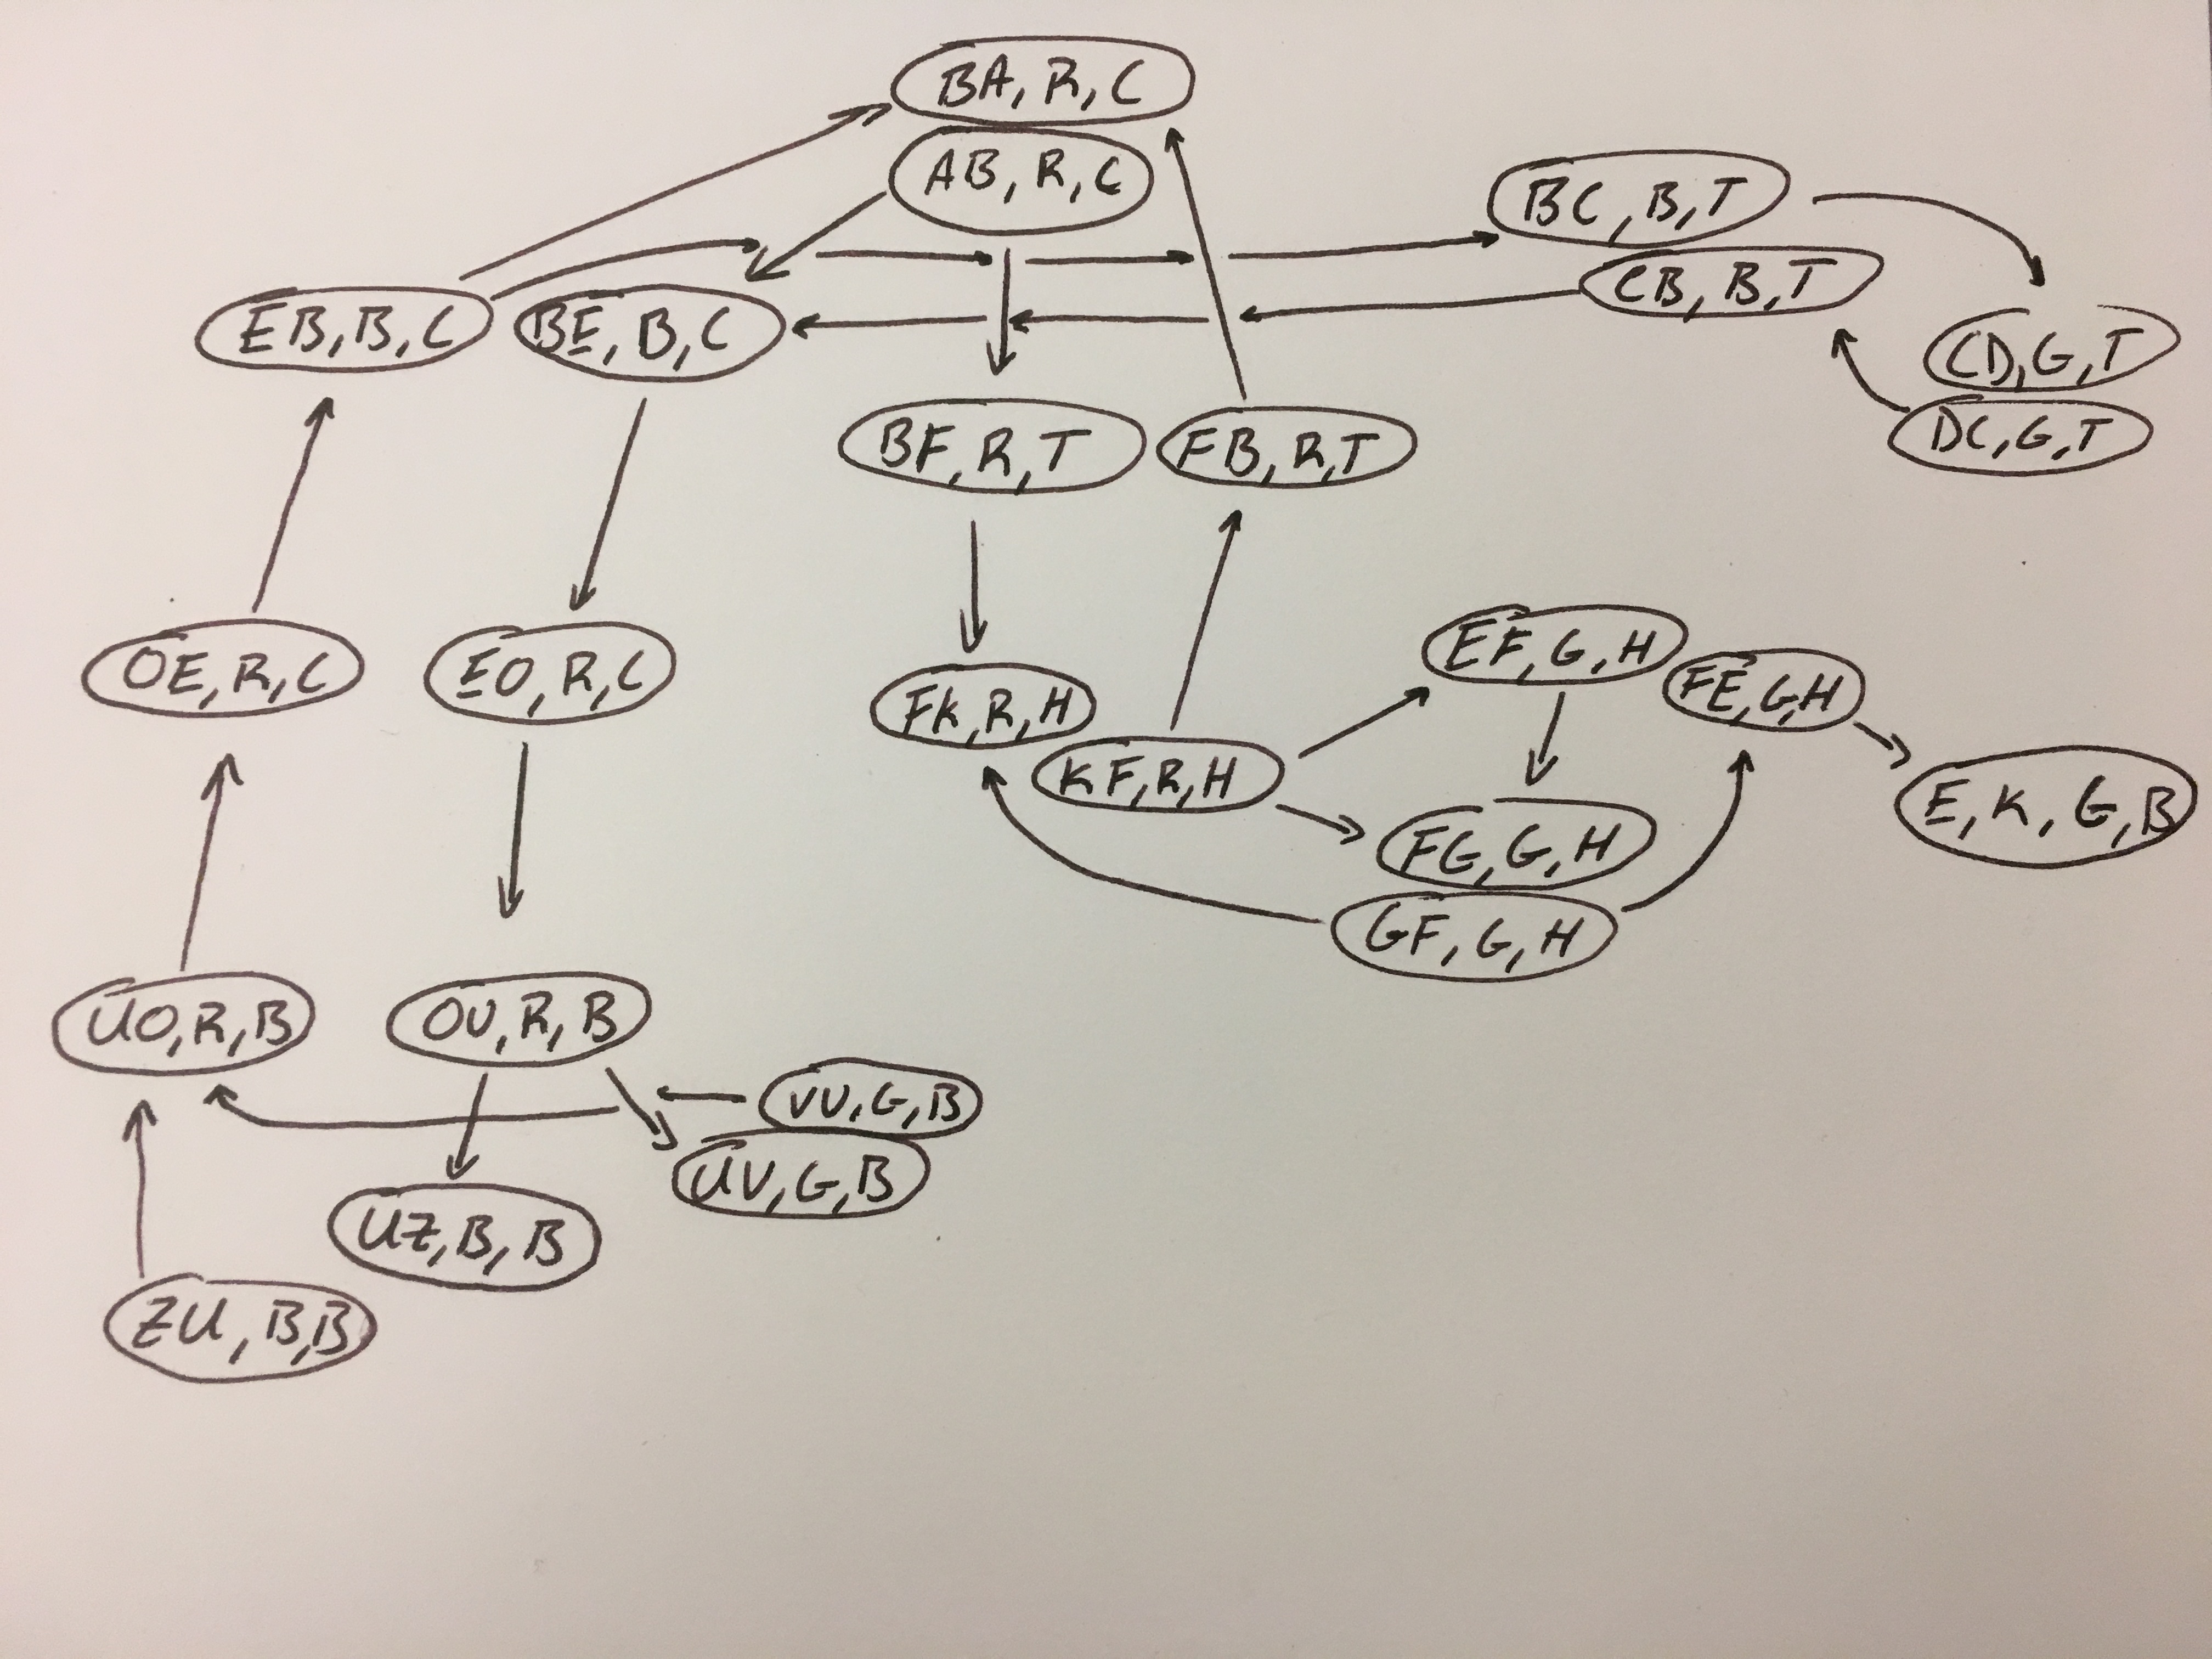 BA, R, C
AB, R, C
BC, B, T
CB, B, T
EB, B, C
BE, B, C
CD, G, T
DC, G, T
BF, R, T
FB, R, T
OE, R, C
EO, R, C
FK, R, H
KF, R, H
EF, G, H
FE, G, H
E, K, G, B
FG, G, H
GF, G, H
UO, R, B
OU, R, B
VU, G, B
UV, G, B
UZ, B, B
ZU, B, B